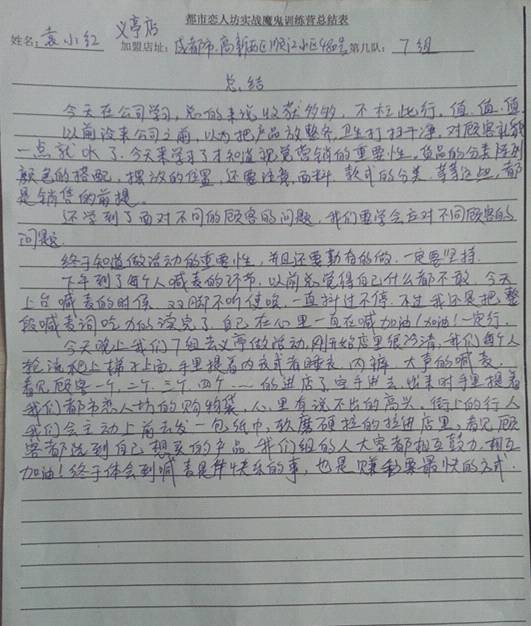 都市恋人坊实战魔鬼训练营总结表
义亭店
姓名: 袁小红 加盟店址: 成都市高新西区顺江小区480号 第几队: 7组
总结
今天在公司学习,总的来说收获多多,不枉此行,值,值,值
以前没来公司之前,以为把产品放整齐,卫生打扫干净,对顾客礼貌
一点就OK了.今天来学习了才知道视觉营销的重要性,货品的分类陈列
颜色的搭配,摆放的位置,还要注意,面料,款式的分类.等等这些,都
是销售的前提。
还学到了面对不同的顾客的问题,我们要学会应对不同顾客的
问题
终于知道做活动的重要性,并且还要勤奋的做,一定要坚持.
下午到了每个人喊麦的环节,以前总觉得自己什么都不敢,今天
上台喊麦的时候,双脚不听使唤,一直抖过不停,不过我还是把整
段喊麦词吃力的读完了,自己在心里一直在喊加油!加油!一定行.
今天晚上我们7组去义亭做活动,刚开始店里很冷清,我们每个人
轮流爬上梯子上面,手里提着内衣或者睡衣,内裤,大声的喊麦,
看见顾客一个,二个,三个,四个……的进店了空手进去,出来时手里提着
我们都市恋人坊的购物袋,心里有说不出的高兴,街上的行人
我们会主动上前去发一包纸巾,软磨硬拉的拉进店里,看见顾
客都选到自己想买的产品,我们组的人大家都相互鼓力,相互
加油!终于体会到喊麦是件快乐的事,也是赚钞票最快的方式.